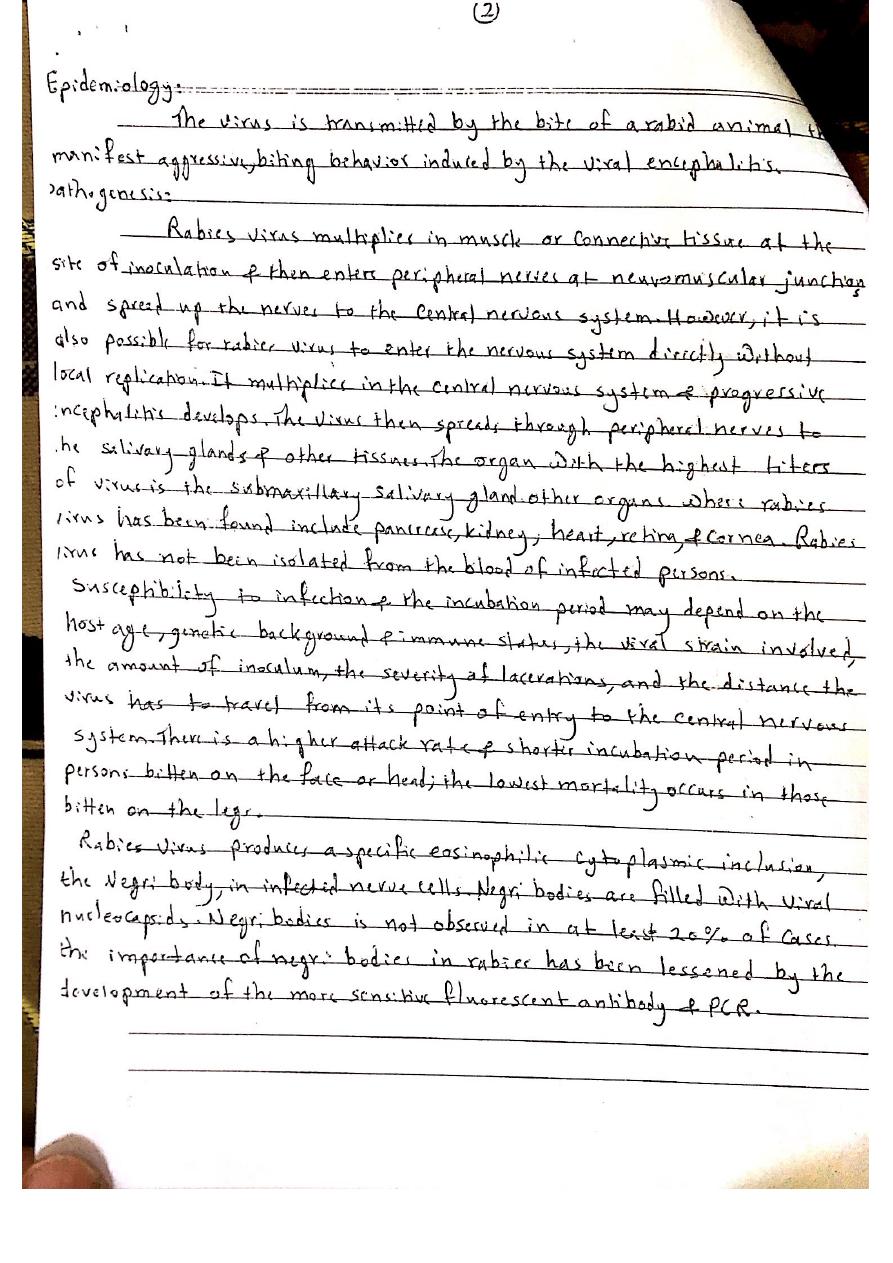 (2)
Epidemiology:
The virus is transmitted by the bite of a rabid animal th
manifest aggressive, biting behavior induced by the viral encephalitis.
Pathogenesis:
Rabies virus multiplies in muscle or Connective tissue at the
site of inoculation & then enters peripheral nerves at neuromuscular junctions
and spread up the nerves to the Central nervous system. However, it is
also possible for rabies virus to enter the nervous system directly without
local replication. It multiplies in the central nervous system & progressive
encephalitis develops. The virus then spreads through peripheral nerves to
he salivary glands & other tissues. The organ with the highest titers
of virus is the submaxillary salivary gland. other organs where rabies
virus has been found include pancrease, kidney, heart, retina, & Cornea. Rabies
virus has not been isolated from the blood of infected persons.
Susceptibility to infection & the incubation period may depend on the
host age, genetic background & immune status, the viral strain involved,
the amount of inoculum, the severity of lacerations, and the distance the
virus has to travel from its point of entry to the central nervous
system. There is a higher attack rate & shorter incubation period in
persons bitten on the face or head; the lowest mortality occurs in those
bitten on the legs.
Rabies Virus produces a specific eosinophilic Cytoplasmic inclusion,
the Negri body, in infected nerve cells. Negri bodies are filled with viral
nucleocapsids. Negri bodies is not observed in at least 20% of Cases.
the importance of negri bodies in rabies has been lessened by the
development of the more sensitive fluorescent antibody & PCR.